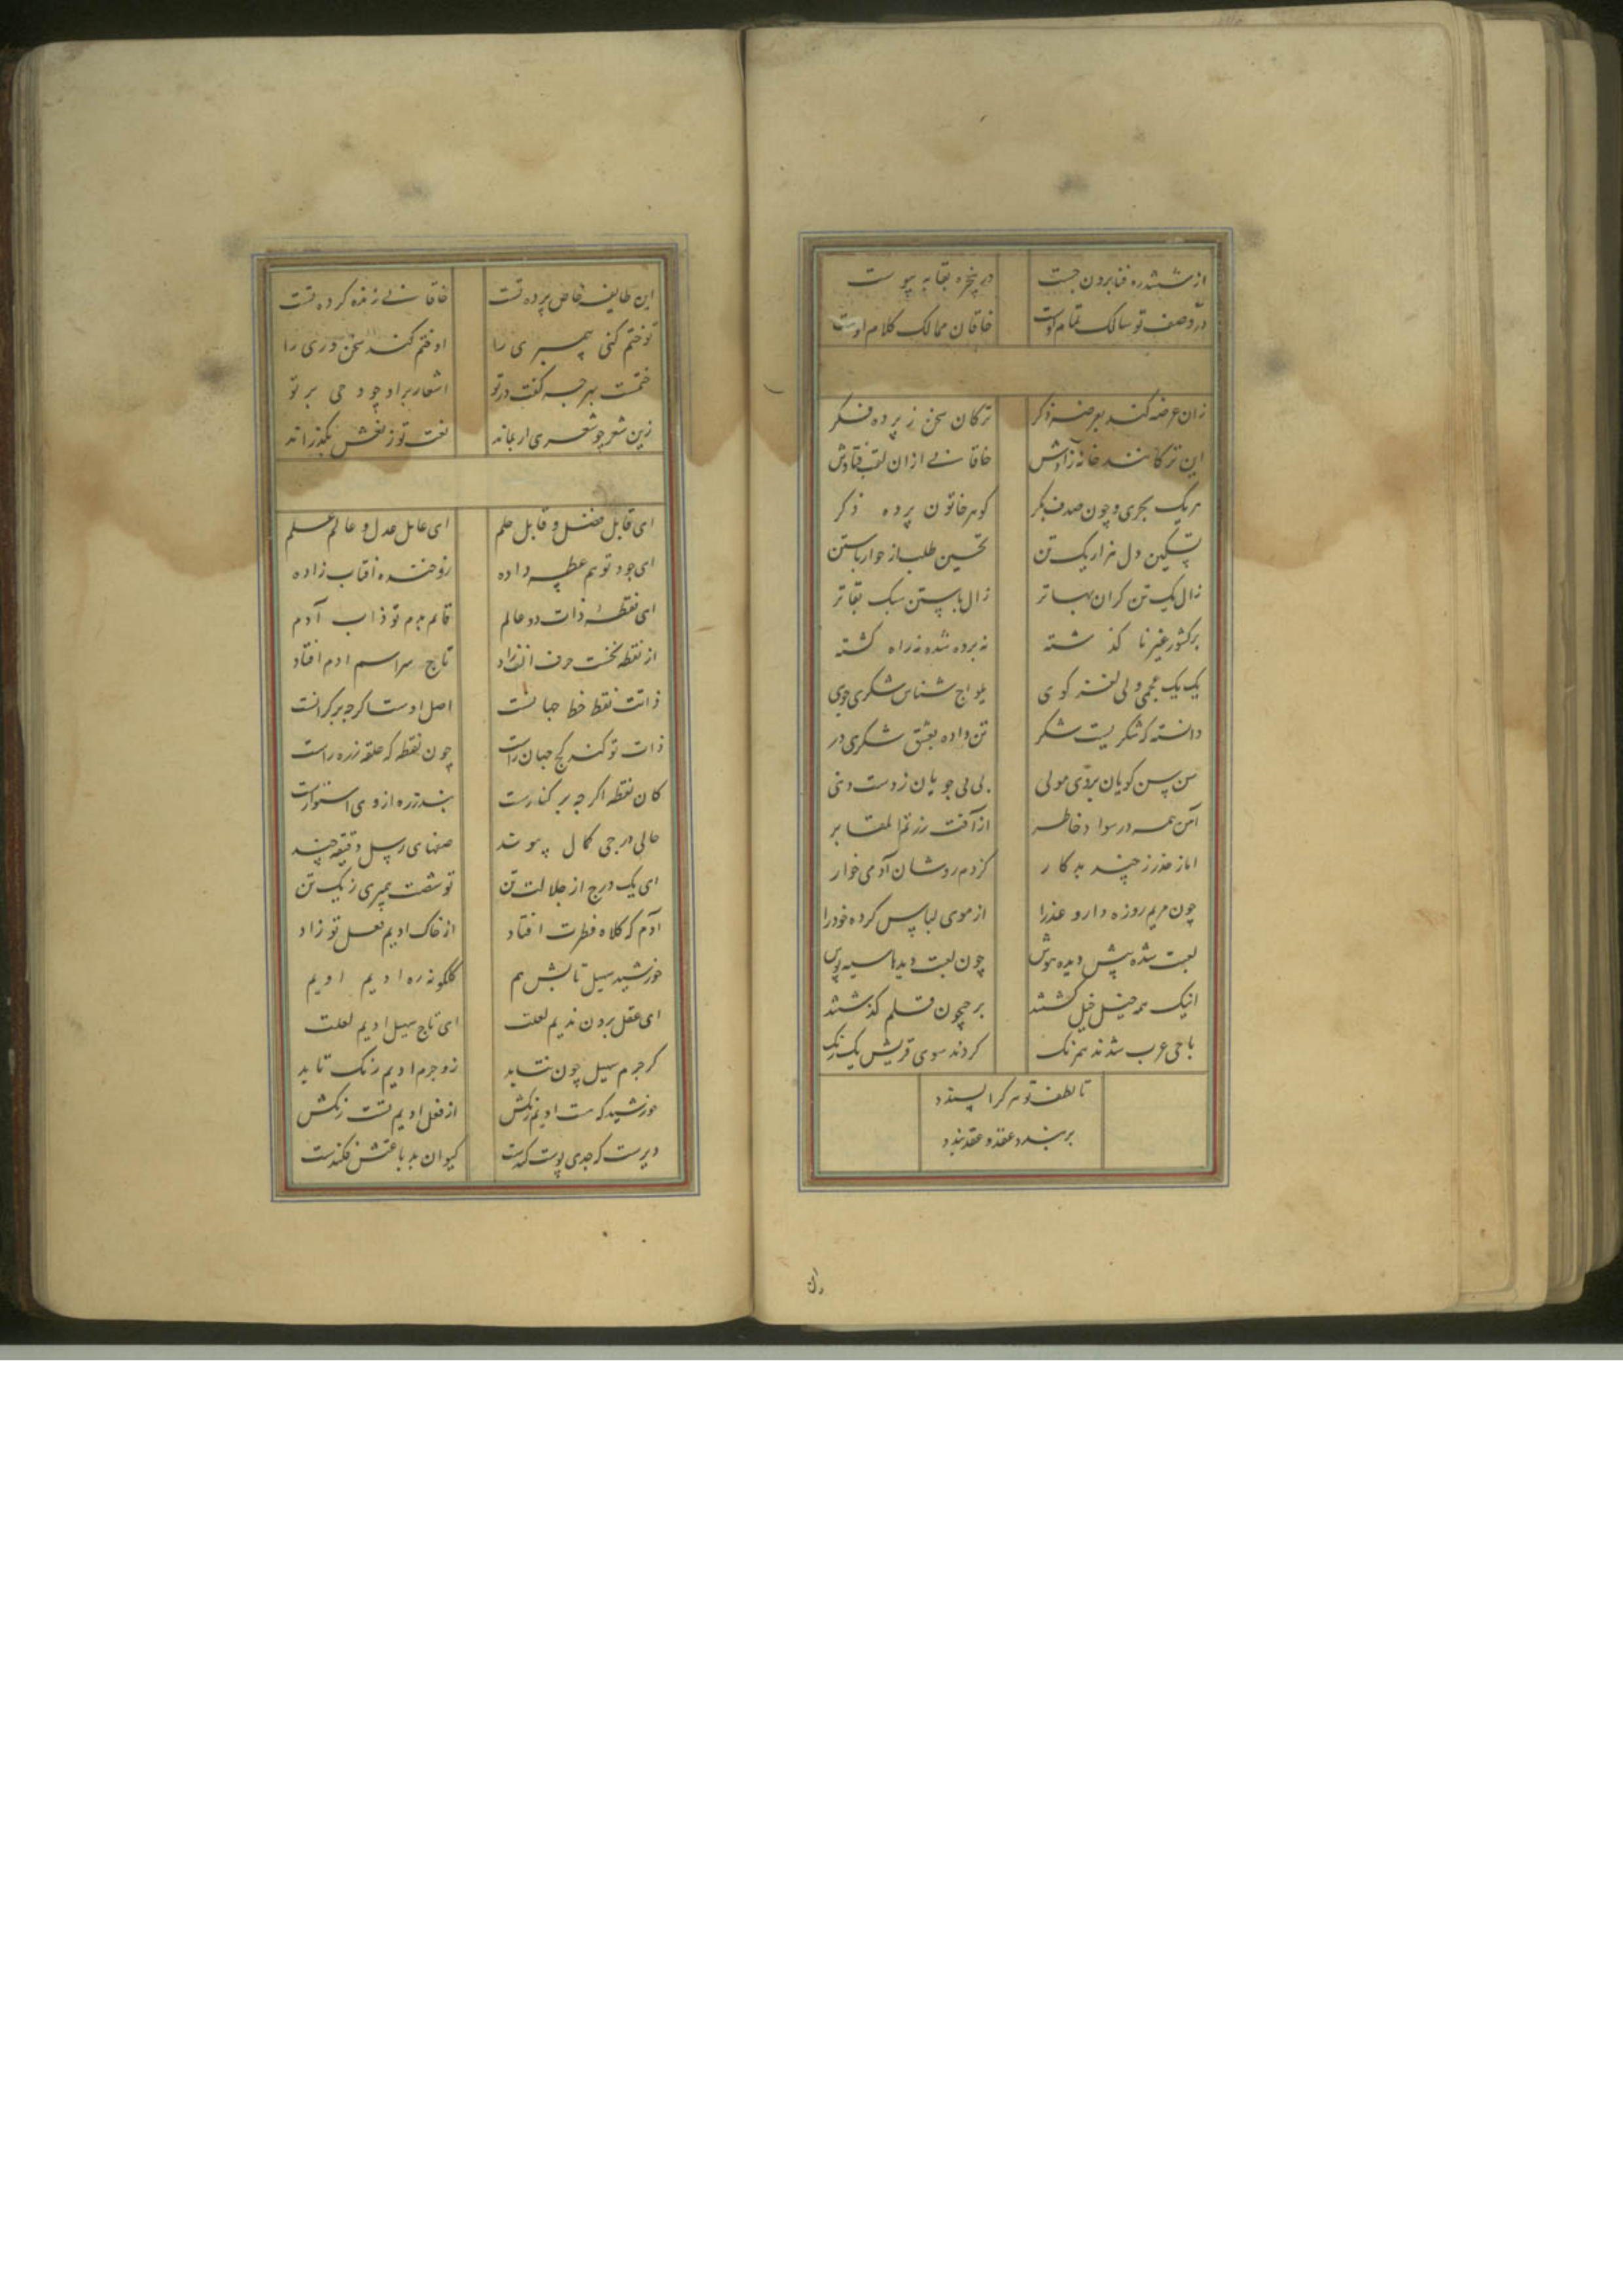 از ششدره فنا برون جست
در پنجره بقا به پیوست
در وصف تو سالک تمام اوست
خاقان ممالک کلام اوست
زان عرضه کند بعرضه ذکر
ترکان سخن ز پرده فکر
این ترکانند خانه زادش
خاقانی ازان لقب فتادش
هر یک بحری و چون صدف بکر
کوهر خاتون پرده ذکر
دل هزار یک تن
تحسین طلب از
زال یک تن کران بها تر
زال سبک بقا تر
بر کشور غیر نا کذشته
نه برده شده نه راه کشته
یک یک عجمی ولی لغز کوی
یلواج شناس شکری جوی
دانسته که شکریست شکر
تن داده بعشق شکری در
سن سن کویان بردی مولی
بی بی جویان ز دست دنی
آمن همه در سواد خاطر
از آفت زرتم المقابر
اما ز حذر ز چند بدکار
کژدم روشان آدمی خوار
چون مریم روزه دار و عذرا
از موی لباس کرده خود را
لعبت شده پیش دیده هوش
چون لعبت دیدها سیه پوش
اینک همه خیل خیل کشتند
بر جیحون قلم کذشتند
با حی عرب شدند همرنک
کردند سوی قریش یک رنک
تا لطف تو هر کرا پسندد
بر بندد عقد و عقد بندد
ران
این طایفه خاص پرده تست
خاقانی زنده کرده تست
تو ختم کنی پیمبری را
او ختم کند سخن دری را
ختمست بهر چه کفت در تو
اشعار بر او چو وحی بر تو
زین شعر چو شعری ار بماند
نعت تو ز نعش بکذراند
ای قابل فضل و قابل حلم
ای عامل عدل و عالم علم
ای جود تو هم عطیه داده
زو خنده آفتاب زاده
ای نقطه ذات دو عالم
قائم بدم تو ذات آدم
از نقطه نخست حرف زاد
تاج سر اسم ادم افتاد
ذاتت نقط خط جهانست
اصل اوست اکر چه بر کرانست
ذات تو کند کج جهان راست
چون نقطه که حلقه زره راست
کان نقطه اکر چه بر کنارست
بند زره از وی استوارست
حالی درجی کمال پیوند
صفهای رسل دقیقه چند
ای یک درج از جلالت تن
تو شصت پیمبری ز یک تن
آدم که کلاه فطرت افتاد
از خاک ادیم نعل تو زاد
خورشید سهیل تابش هم
کلکونه ره ادیم ادیم
ای عقل برون ندیم لعلت
ای تاج سهیل ادیم لعلت
کر جرم سهیل چون نتابد
زو جرم ادیم رنک تابد
خورشید که هست ادیم رنکش
از نعل ادیم تست رنکش
دیرست که جدی پوست کندست
کیوان بدباغتش فکندست